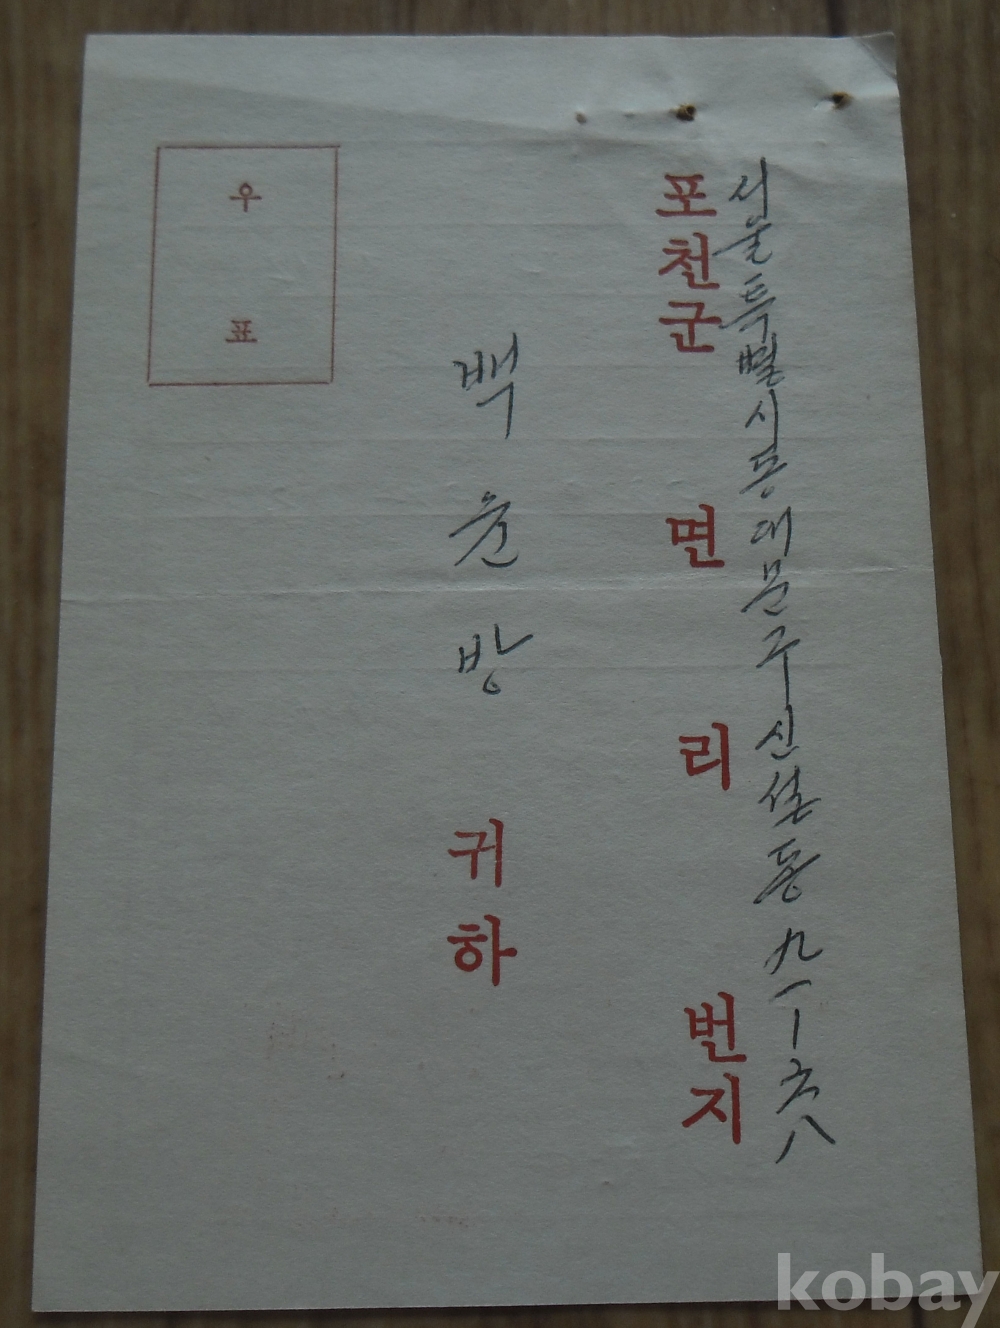 서울특별시동대문구신설동九一一六八
포천군 면 리 번지
백윤방 귀하
우표
kobay